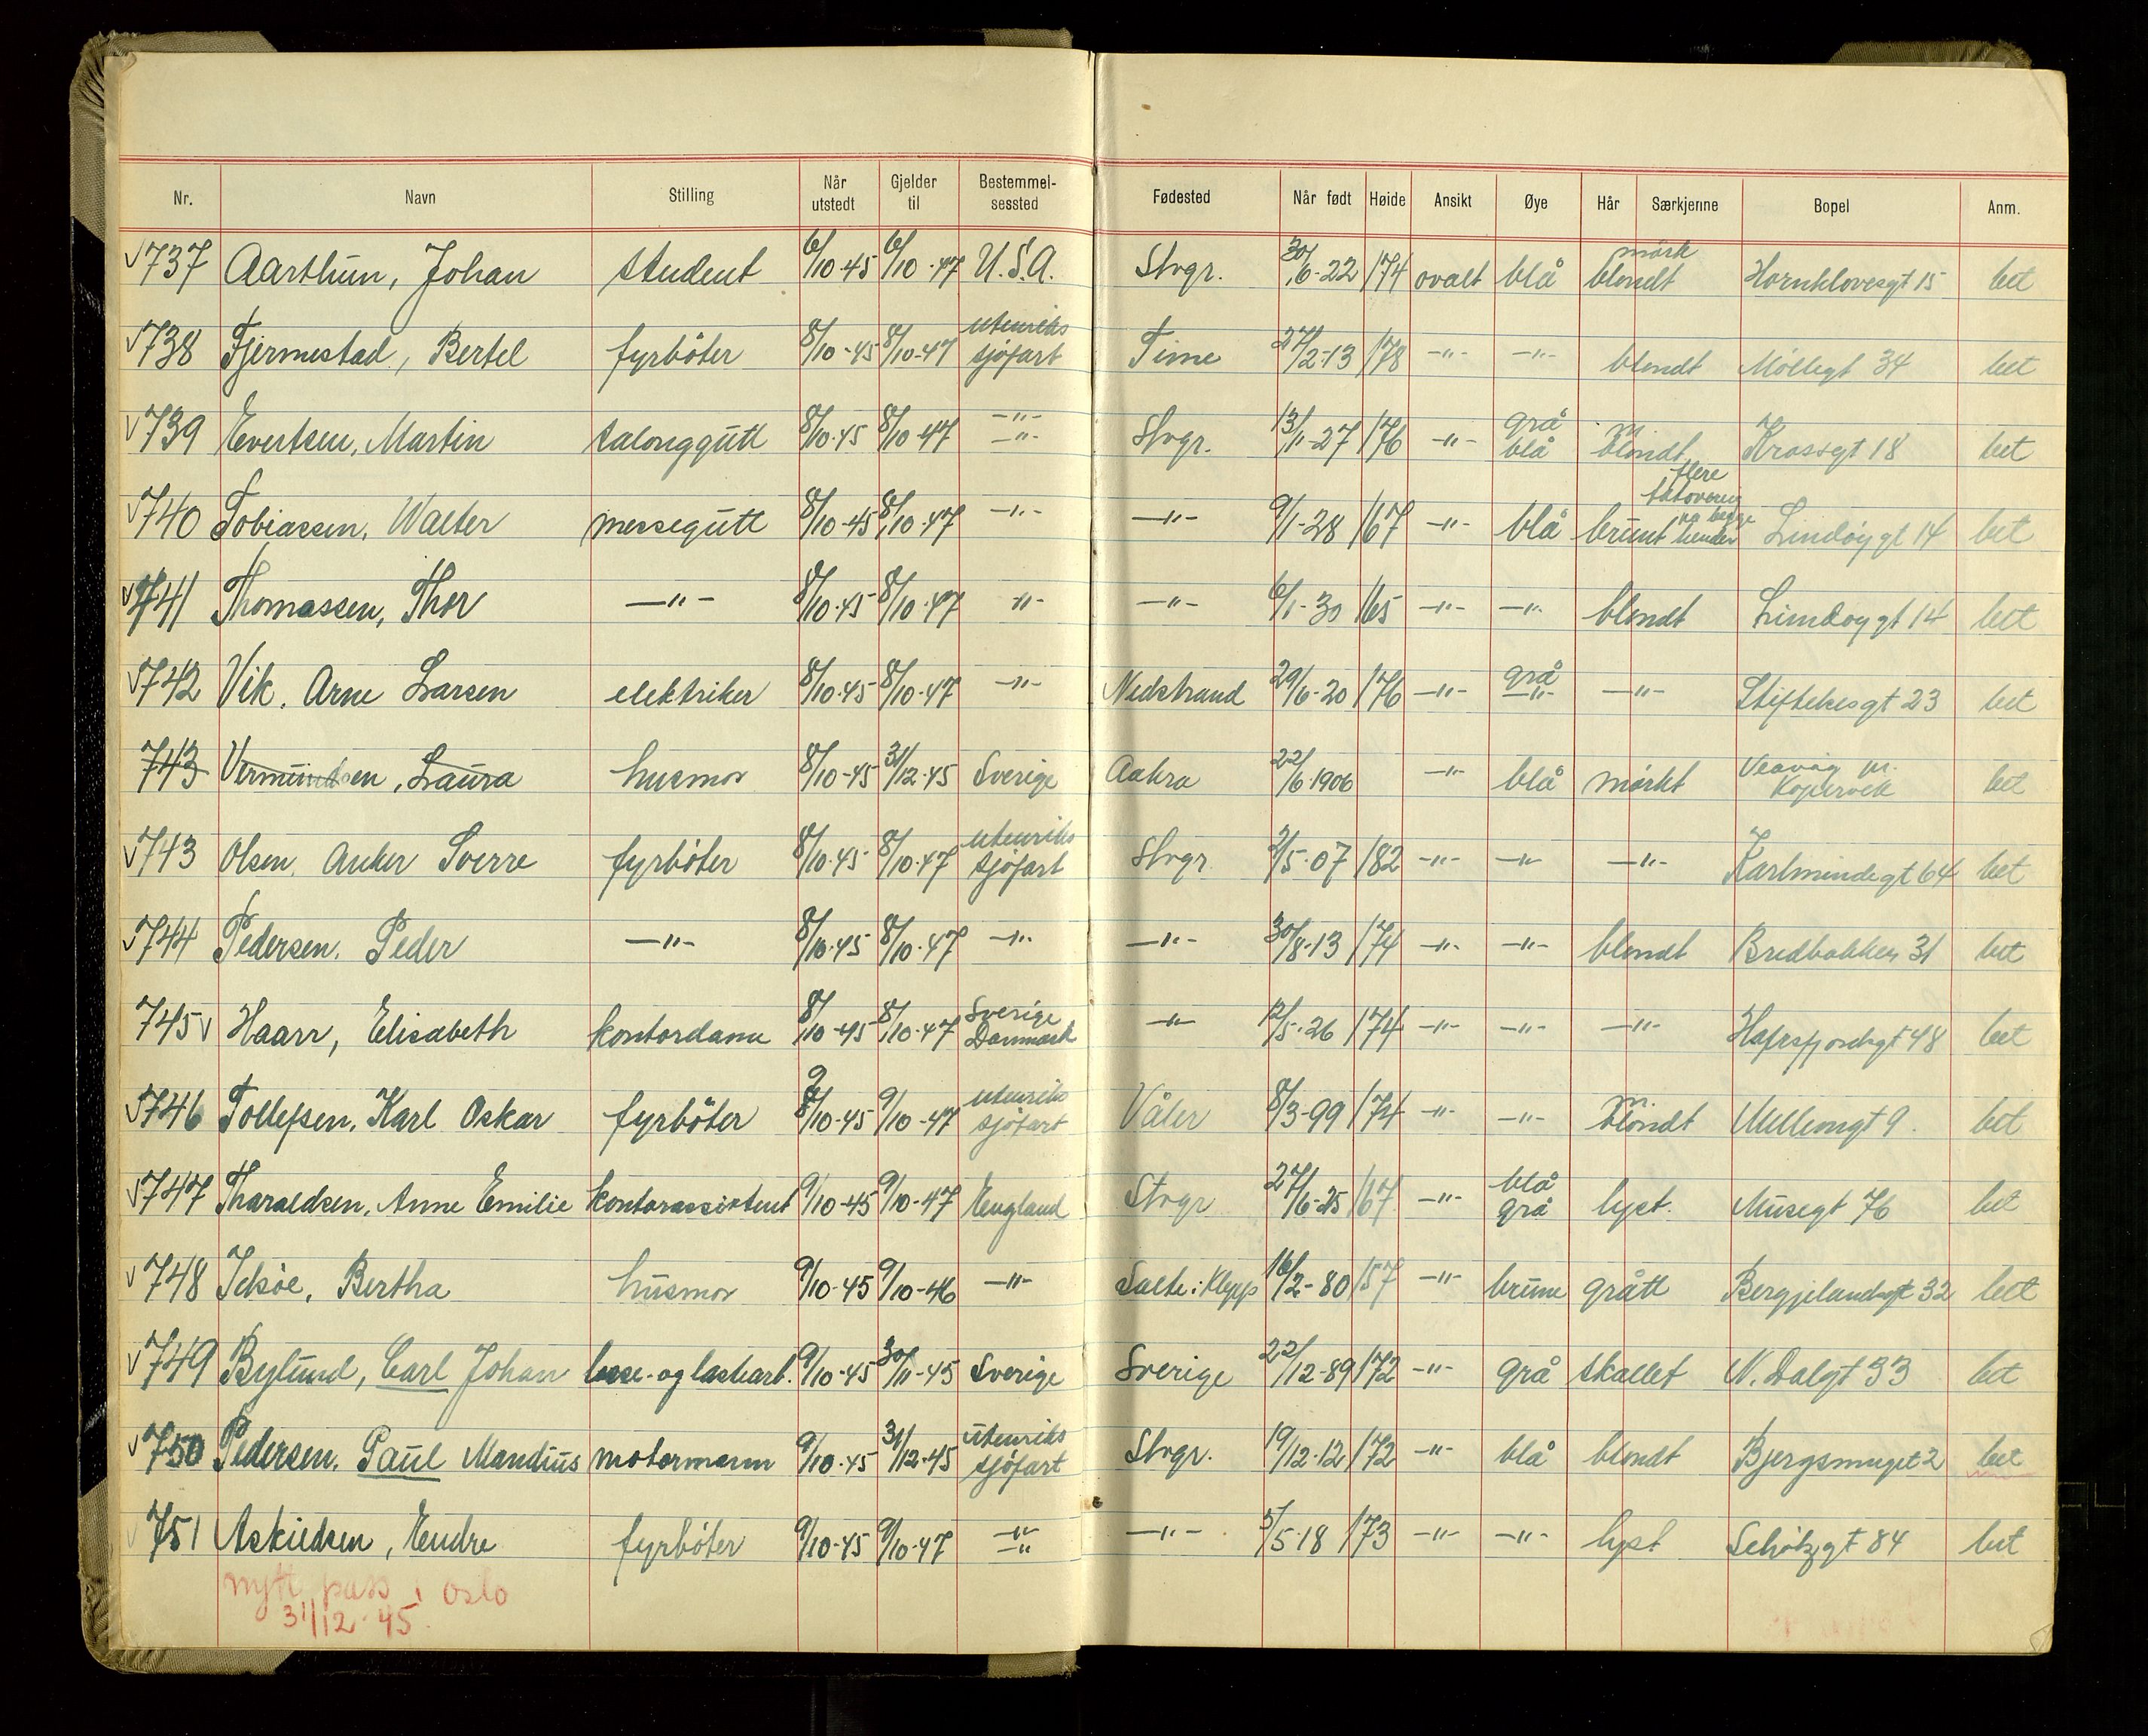 Nr. Navn Stilling Når utstedt Gjelder til Bestemmelsessted Fødested Når født Høide Ansikt Øye Hår Særkjenne Bopel Anm.
√737 Aarthun, Johan student 6/10-45 6/10-47 U.S.A. Stvgr. 30/6-22 174 ovalt blå mørk blondt Hornklovesgt 15 bet
√738 Tjermestad, Bertel fyrböter 8/10-45 8/10-47 utenriks sjøfart Time 27/2-13 178 -"- -"- blondt Möllegt 34 bet
√739 Evertsen, Martin salonggutt 8/10-45 8/10-47 -"- -"- Stvgr. 13/11-27 176 -"- grå blå m. blondt Krossgt 18 bet
√740 Tobiassen, Walter messegutt 8/10-45 8/10-47 -"- -"- 9/1-28 167 -"- blå brunt flere tatovering på begge hender Lindöygt 14 bet
√741 Thomassen, Thor -"- 8/10-45 8/10-47 -"- -"- 6/1-30 165 -"- -"- blondt Lindöygt 14 bet
√742 Vik, Arne Larsen elektriker 8/10-45 8/10-47 -"- Nedstrand 29/6-20 176 -"- grå -"- -"- Stiftelsesgt 23 bet
743 Vermundsen, Laura husmor 8/10-45 31/12-45 Sverige Aakra 22/6-1906 -"- blå mörkt Veavåg pr. Kopervik bet
√743 Olsen, Anker Sverre fyrböter 8/10-45 8/10-47 utenriks sjöfart Stvgr. 2/5-07 182 -"- -"- -"- Karlmindegt 64 bet
√744 Pedersen, Peder -"- 8/10-45 8/10-47 -"- -"- 30/8-13 174 -"- -"- blondt Bredbakken 31 bet
745√ Haarr, Elisabeth kontordame 8/10-45 8/10-47 Sverige Danmark -"- 12/5-26 174 -"- -"- -"- Hafrsfjordgt 48 bet
√746 Tollefsen, Karl Oskar fyrböter 9/10-45 9/10-47 utenriks sjöfart Våler 8/3-99 174 -"- -"- m. blondt 9. bet
√747 Tharaldsen, Anne Emilie kontorassistent 9/10-45 9/10-47 England Stvgr 27/6-25 167 -"- blå grå lyst. Musegt 76 bet
√748 Idsöe, Bertha husmor 9/10-45 9/10-46 -"- Salte i Klepp 16/2-80 157 -"- brune grått Bergjelandsgt 32 bet
√749 Bylund, Carl Johan losse- og lastearb. 9/10-45 30/11-45 Sverige Sverige 22/12-89 172 -"- grå skallet N. Dalgt 33 bet
√750 Pedersen, Paul Mandius motormann 9/10-45 31/12-45 utenriks sjöfart Stvgr. 19/12-12 172 -"- blå blondt Bjergsmuget 2 bet
√751 Askildsen, Endre fyrböter 9/10-45 9/10-47 -"- -"- -"- 5/5-18 173 -"- -"- lyst Schötzgt 84 bet
nytt pass i Oslo
31/12-45.